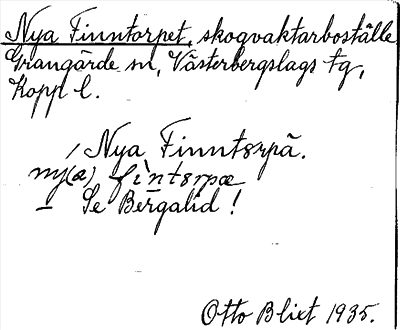 Nya Finntorpet, skogvaktarboställe,
Grangärde sn, Västerbergslags tg,
Kopp l.
Nya Finntorpä.
ny(æ) fìntorpæ
Se Bergalid!
Otto Blixt 1935.